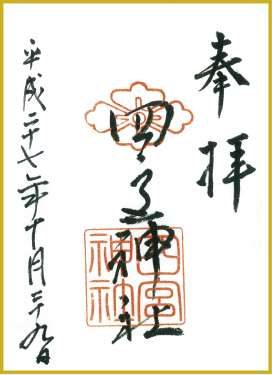 奉拝
四宮神社
四宮
神社
平成二十七年十月二十九日